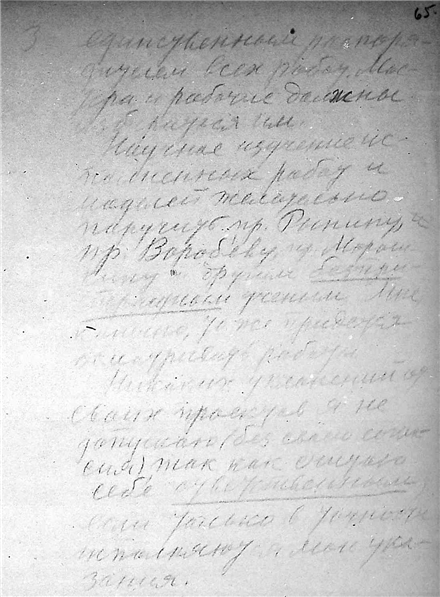 65.
3 единственным распоря-
дителем всех работ. Мас-
тера и рабочие должны
им.
Научное изучение ис-
полненных работ и
моделей желательно
поручить пр. Рынину, и
пр. Воробьеву,
и другим беспри-
страстным ученым. Мне
конечно, тоже придется
осматривать работы.
Никаких уклонений от
своих проектов я не
допускаю (без своего согла-
сия) так как считаю
себя ответственным,
если только в точности
исполняются мои ука-
зания.